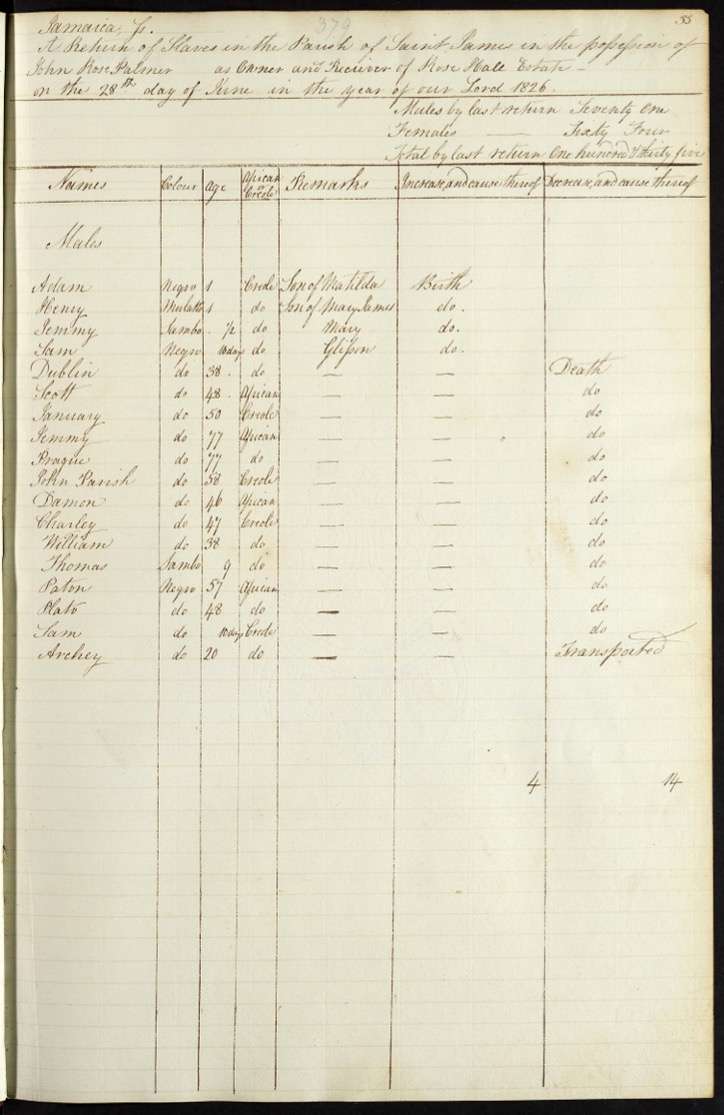 379
55
Jamaica, Ss.
A Return of Slaves in the Parish of Saint James in the possession of
John Rose Palmer as Owner and Receiver of Rose Hall Estate —
on the 28th day of June in the year of our Lord 1826.
Males by last return Seventy One
Females — Sixty Four
Total by last return One hundred & thirty five
Names Colour Age African or Creole Remarks Increase, and cause thereof Decrease, and cause thereof
Males
Adam Negro 1 Creole Son of Matilda Birth
Henry Mulatto 1 do Son of Mary James do.
Jemmy Sambo ½ do Mary do.
Sam Negro 10 days do do.
Dublin do 38 . do — — Death
Scott do 48 . African — — do
January do 50 Creole — — do
Jemmy do 77 African — — do
Prague do 77 do — — do
John Parish do 58 Creole — — do
Damon do 46 African — — do
Charley do 47 Creole — — do
William do 38 do — — do
Thomas Sambo 9 do — — do
Paton Negro 57 African — — do
Plato do 48 do — — do
Sam do 10 days Creole — — do
Archey do 20 do — — Transported
4 14